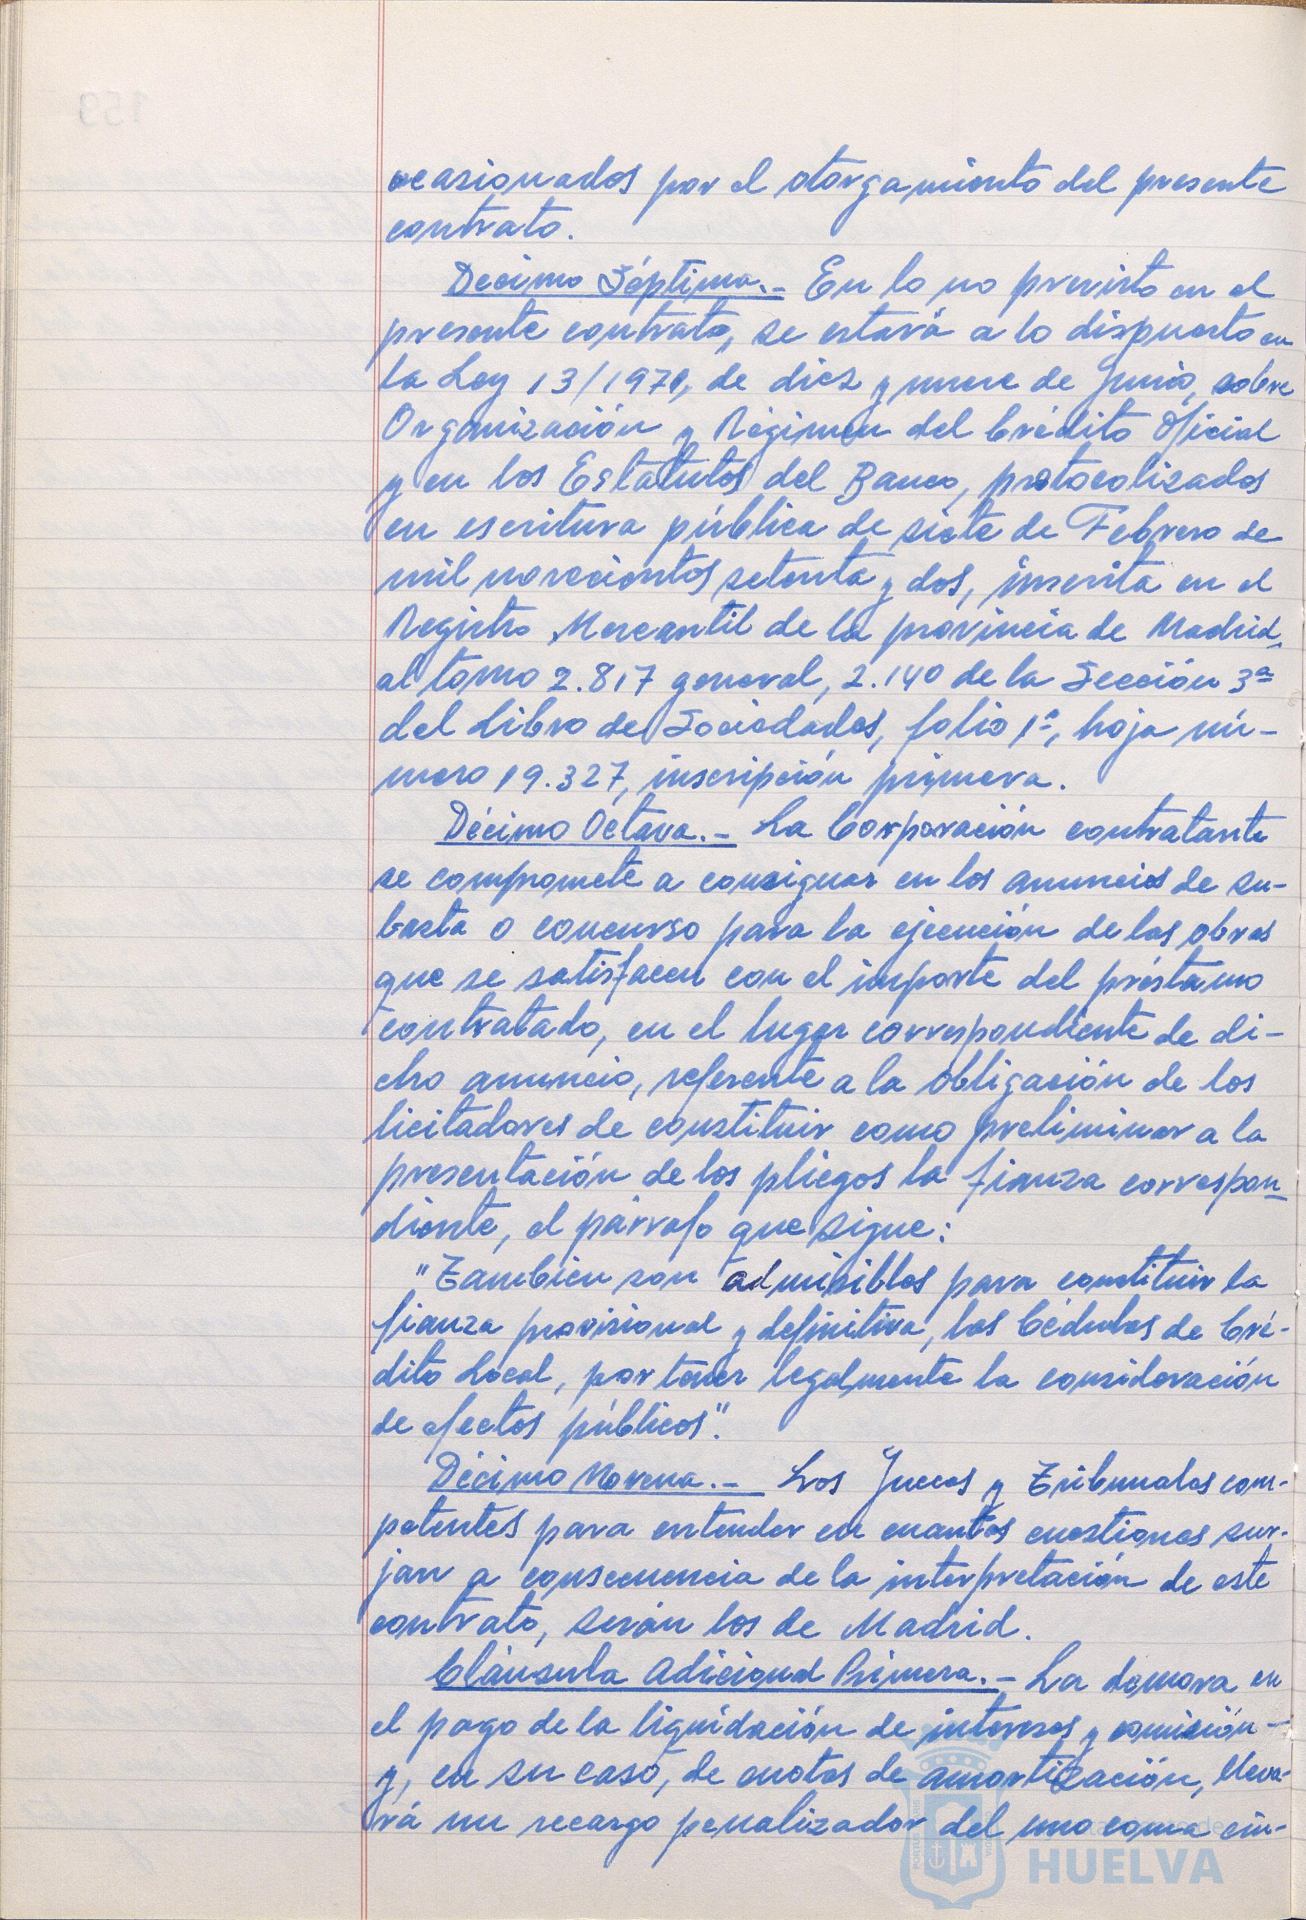 ocasionados por el otorgamiento del presente
contrato.
Décimo Séptima.- En lo no previsto en el
presente contrato, se estará a lo dispuesto en
la Ley 13/1971, de diez y nueve de Junio, sobre
Organización y Régimen del Crédito Oficial
y en los Estatutos del Banco, protocolizados
en escritura pública de siete de Febrero de
mil novecientos setenta y dos, inscrita en el
Registro Mercantil de la provincia de Madrid,
al tomo 2.817 general, 2.140 de la Sección 3ª
del Libro de Sociedades, folio 1º, hoja nú-
mero 19.327, inscripción primera.
Décimo Octava.- La Corporación contratante
se compromete a consignar en los anuncios de su-
basta o concurso para la ejecución de las obras
que se satisfacen con el importe del préstamo
contratado, en el lugar correspondiente de di-
cho anuncio, referente a la obligación de los
licitadores de constituir como preliminar a la
presentación de los pliegos la fianza correspon-
diente, el párrafo que sigue:
"Tambien son admisibles para constituir la
fianza provisional y definitiva, las Cédulas de Cré-
dito Local, por tener legalmente la consideración
de efectos públicos".
Décimo Novena.- Los Jueces y Tribunales com-
petentes para entender en cuantas cuestiones sur-
jan a consecuencia de la interpretación de este
contrato, serán los de Madrid.
Cláusula Adicional Primera.- La demora en
el pago de la liquidación de intereses y comisión-
y, en su caso, de cuotas de amortización, lleva-
rá un recargo penalizador del uno coma cin-
HUELVA